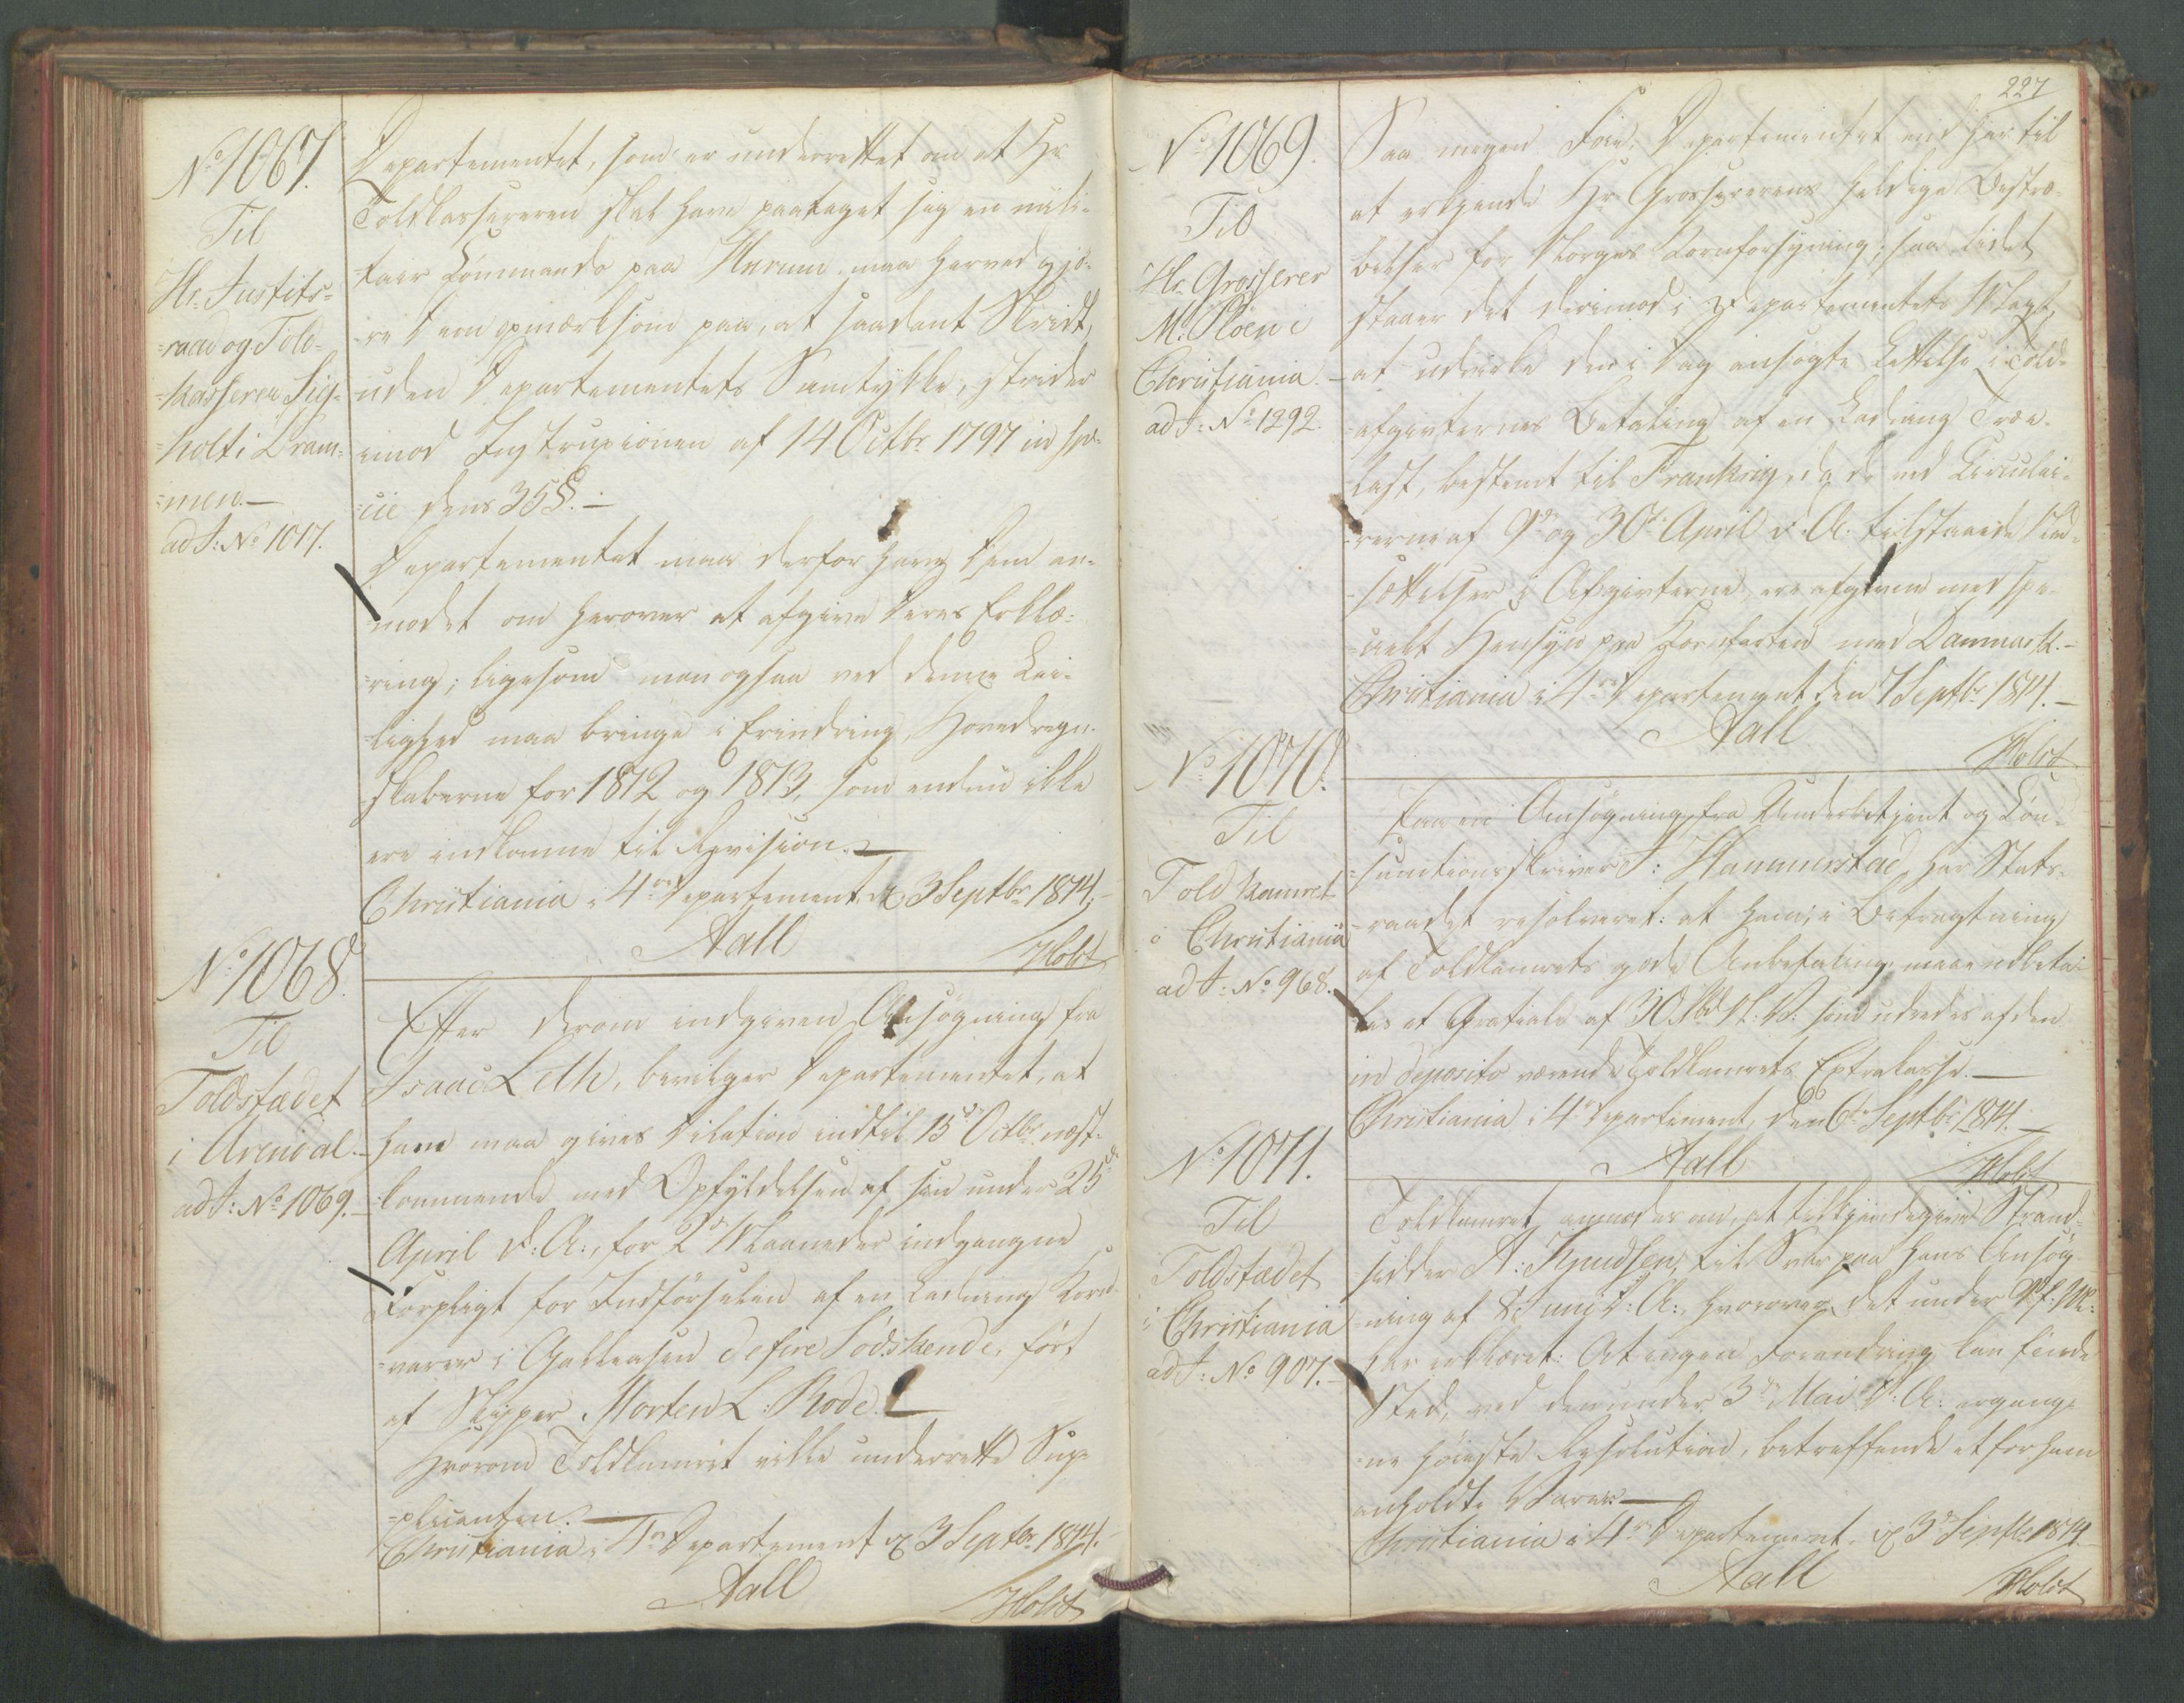 No 1067.
Til
Hr. Justits-
-raad og Told-
-kasserer Sig-
-holt i Dram-
-men.—
ad J: No 1017.
Departementet, som er underrettet om at Hr.
Toldkassereren skal have paataget sig en mili-
-tair Commando paa Hurum, maa herved gjö-
-re Dem opmærksom paa, at saadant Skridt,
uden Departementets Samtykke, strider
imod Instruxionen af 14 Octbr. 1797 in spe-
-cie dens 35 §.—
Departementet maa derfor have Dem an-
-modet om herover at afgive Deres Erklæ-
-ring; ligesom man ogsaa ved denne Lei-
-lighed maa bringe i Erindring, Hovedregn-
-skaberne for 1812 og 1813, som endnu ikke
ere indkomne til Revision.—
Christiania i 4de Departement d. 3 Septbr. 1814.—
Aall
Holst
No 1068.
Til
Toldstædet
i Arendal.—
ad J: No 1069.—
Efter derom indgiven Ansögning fra
Isaac Leth, bevilger Departementet, at
ham maa gives Dilation indtil 15de Octbr. næst-
-kommende med Opfyldelsen af sin under 25de
April d: A:, for 2de Maaneder indgangne
Forpligt for Indförselen af en Ladning Korn-
-varer i Galleasen de fire Södskende, fört
af Skipper Morten L: Rode.—
Hvorom Toldkamret ville underrette Sup-
-plicanten.—
Christiania i 4de Departement d. 3 Septbr. 1814.—
Aall
Holst
227
No 1069.
Til
Hr. Grosserer
M. Ploen i
Christiania.—
ad J: No 1292.
Saa megen Föie Departementet end har til
at erkjende Hr. Grossererens heldige Bestræ-
-belser for Norges Kornforsyning; saa lidet
staaer det derimod i Departementets Magt,
at udvirke den i Dag ansögte Lettelse i Told-
-afgivternes Betaling af en Ladning Træe-
-last, bestemt til Frankrig, da de ved Circulai-
-rerne af 9de og 30te April d: A: tilstaaede Ned-
-sættelser i Afgivterne ere afgivne med spe-
-cielt Hensyn paa Kornfarten med Danmark.—
Christiania i 4de Departement den 7 Septbr. 1814.—
Aall
Holst
No 1070.
Til
Toldkamret
i Christiania
ad J: No 968.
Paa en Ansögning fra Underbetjent og Con-
-sumtionsskriver J: Hammerstad, har Stats-
-raadet resolveret: at ham, i Betragtning
af Toldkamrets gode Anbefaling, maae udbeta-
-les et Gratiale af 30 Rbd. N. V. som udredes af den
in deposito værende Toldkamrets Extrakasse.—
Christiania i 4de Departement, den 6te Septbr. 1814.—
Aall
Holst
No 1071.
Til
Toldstædet
i Christiania
ad J: No 907.—
Toldkamret anmodes om, at tilkjendegive Strand-
-sidder A: Knudsen, til Svar paa hans Ansög-
-ning af 8 Juni d: A:, hvorover det under
har erklæret: At ingen Forandring kan finde
Sted, ved den under 3de Mai d: A: ergang-
-ne höieste Resolution, betreffende et for ham
anholdte Varer.—
Christiania i 4de Departement, d. 3de Septbr 1814.
Aall
Holst